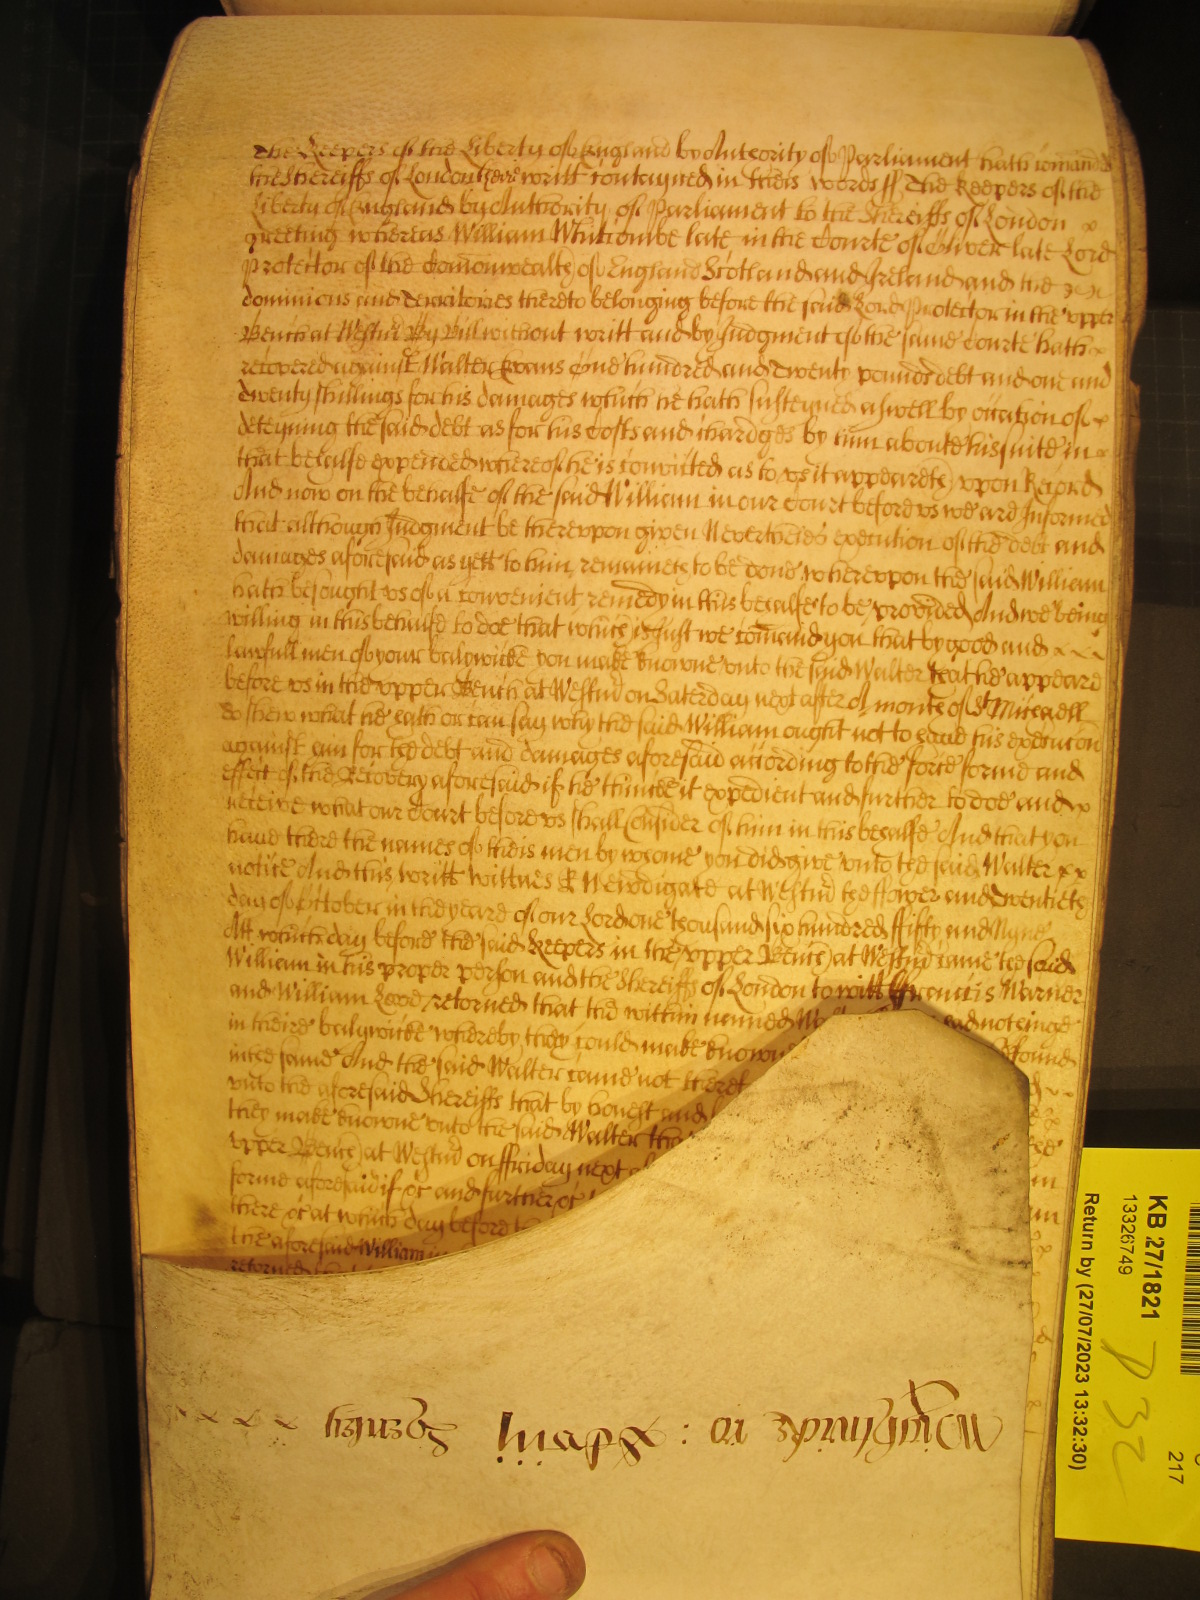 The Keepers of the Liberty of England by Authority of Parliament hath comanded
the Shereiffs of London theire writt conteyned in theis words ss The Keepers of the
Liberty of England by Authority of Parliament to the Shereiffs of London
greeting whereas William Whitcombe late in the Courte of Oliver late Lord
Protector of the Comonwealth of England Scotland and Ireland and the
dominions and Territories thereto belonging before the said Lord Protector in the upper
Bench at Westmr By Bill without writt and by Judgment of the same Courte hath
recovered against Walter Evans One hundred and Twenty pounds debt and one and
Twenty shillings for his damages which he hath susteyned aswell by occation of
deteyning the said debt as for his Costs and chardges by him aboute his suite in
that behalfe expended whereof he is convicted as to us it appeareth upon Record
And now on the behalfe of the said William in our Court before us we are Informed
that although Judgment be thereupon given Neverthelesse execution of the debt and
damages aforesaid as yett to him remaineth to be done whereupon the said William
hath besought us of a convenient remedy in this behalfe to be provided And we being
willing in this behalfe to doe that which is Just we comand you that by good and
lawfull men of your bailywicke you make knowne unto the said Walter that he appeare
before us in the upper Bench at Westmr on Saterday next after A month of St Michaell
To shew what he hath or can say why the said William ought not to have his execucion
against him for the debt and damages aforesaid according to the force forme and
effect of the Recovery aforesaid if he thincke it expedient and further to doe and
receive what our Court before us shall consider of him in this behalfe And that you
have there the names of theis men by whome you did give unto the said Walter
notice And this writt wittnes R Newdigate at Westmr the fower and Twentieth
day of October in the yeare of our Lord one thousand six hundred ffifty and Nyne
Att which day before the said Keepers in the upper Bench at Westmr came the said
William in his proper person and the Shereiffs of London to witt ffrancis Warner
and William Love retorned that the within named had nothinge
in theire bailywicke whereby they could make knowne ffound
in the same And the said Walter came not
unto the aforesaid Shereiffs that by honest and
they make knowne unto the said Walter
upper Bench at Westmr on ffriday next
forme aforesaid if &c and further &c
there &c at which day before
the aforesaid William
retorned
KB 27/1821
13326749
Return by (27/07/2023 13:32:30)
217